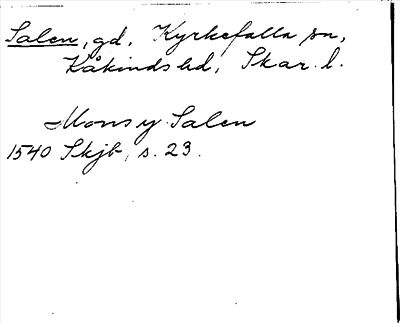 Salen, gd, Kyrkefalla sn,
Kåkinds hd, Skar. l.
Mons y Salen
1540 Skjb, s. 23.